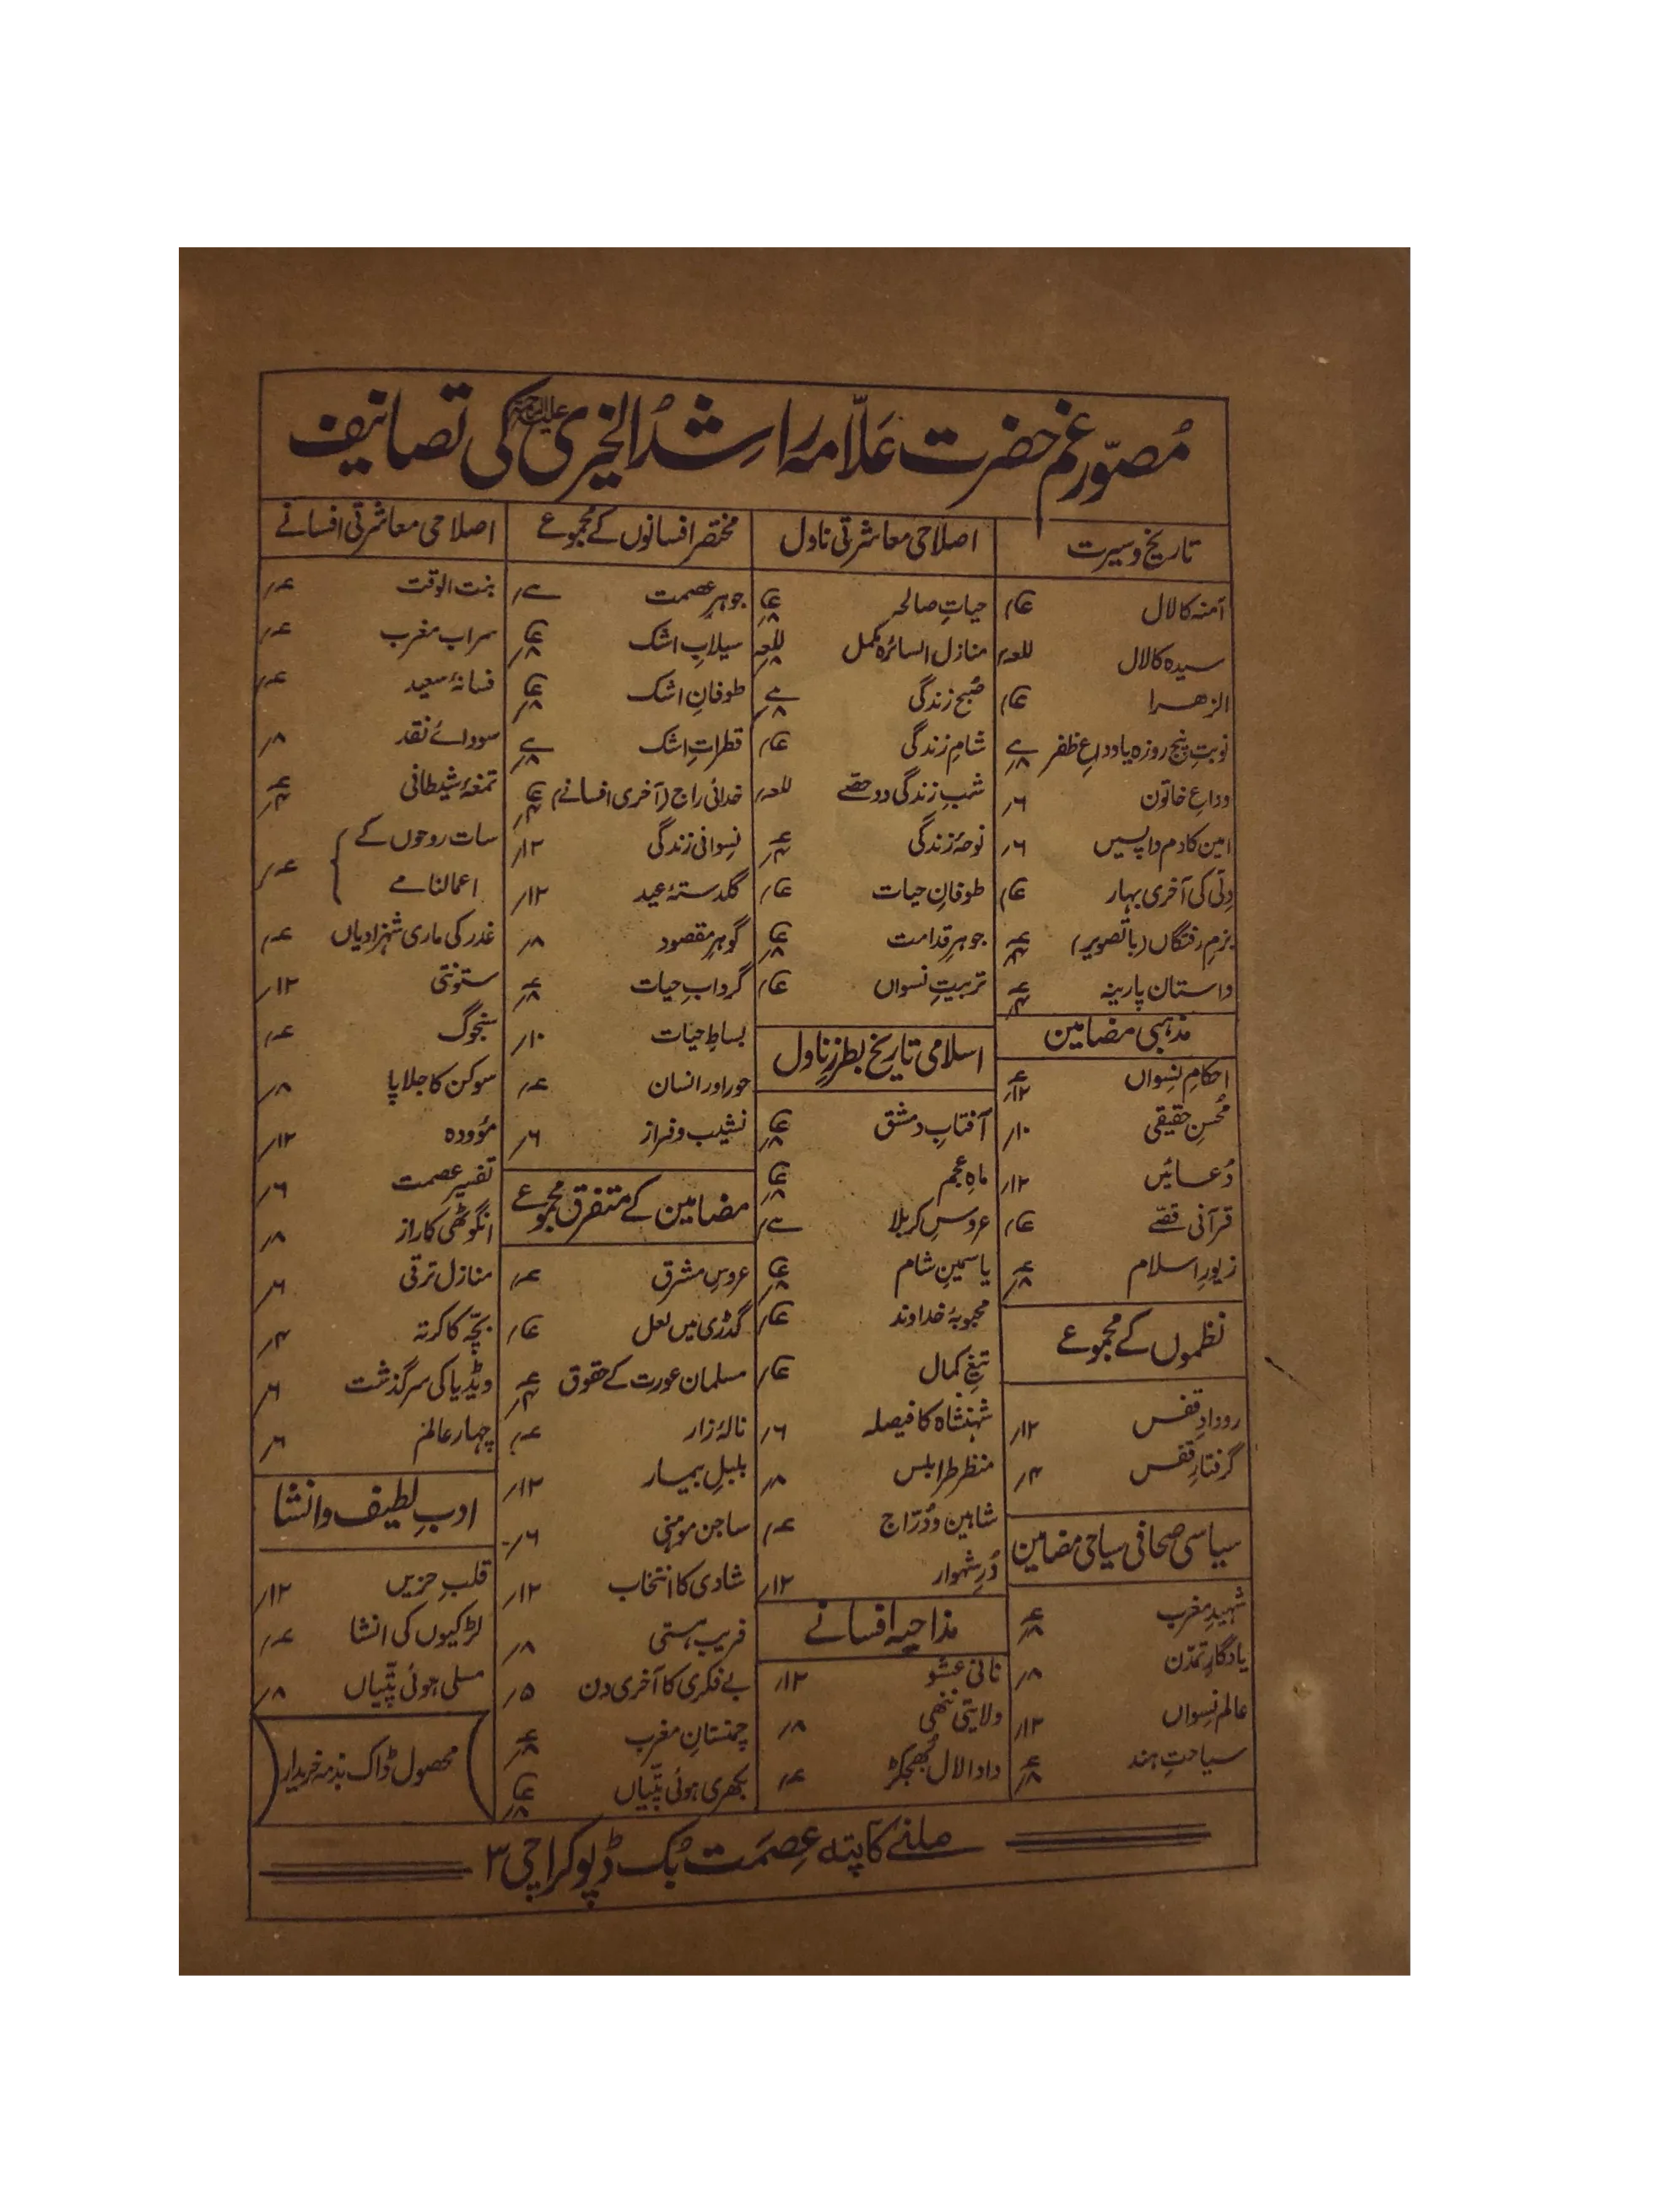 مصوّرِ غم حضرت علّامہ راشدُ الخیری علیہ الرحمۃ کی تصانیف
تاریخ و سیرت
آمنہ کا لال عا؍
سیدہ کا لال للعہ؍
الزھرا عا؍
نوبتِ پنج روزہ یا وداعِ ظفر سے ۸؍
وداعِ خاتون ۶؍
امین کا دم واپسیں ۶؍
دِلّی کی آخری بہار عا؍
بزمِ رفتگاں (باتصویر) عہ ۴؍
داستان پارینہ عہ ۴؍
مذہبی مضامین
احکامِ نِسواں عہ ۱۲؍
مُحسنِ حقیقی ۱۰؍
دُعائیں ۱۲؍
قرآنی قصّے عا؍
زیورِ اسلام عہ ۸؍
نظموں کے مجموعے
رودادِ قفس ۱۲؍
گرفتارِ قفس ۴؍
سیاسی صحافی سیاحی مضامین
شہیدِ مغرب عہ ۸؍
یادگارِ تمدّن ۸؍
عالمِ نِسواں ۱۲؍
سیاحتِ ہند عہ ۸؍
اصلاحی معاشرتی ناول
حیاتِ صالحہ عا ۸؍
منازل السائرہ مکمل للعہ ۸؍
صُبح زندگی سے ۸؍
شامِ زندگی عا؍
شبِ زندگی دو حصّے للعہ؍
نوحۂ زندگی عہ ۴؍
طوفانِ حیات عا؍
جوہرِ قدامت عا ۸؍
تربیتِ نسواں عا؍
اسلامی تاریخ بطرزِ ناول
آفتابِ دمشق عا ۸؍
ماہِ عجم عا ۸؍
عروسِ کربلا سے؍
یاسمینِ شام عا ۸؍
محبوبۂ خداوند عا؍
تیغِ کمال عا؍
شہنشاہ کا فیصلہ ۶؍
منظر طرابلس ۸؍
شاہین و دُرّاج عہ؍
دُرِ شہوار ۱۲؍
مذاحیہ افسانے
نانی عشو ۱۲؍
ولایتی ننھی ۸؍
دادا لال بُجھکڑ عہ؍
مختصر افسانوں کے مجموعے
جوہرِ عصمت سے؍
سیلابِ اشک عا ۸؍
طوفانِ اشک عا ۸؍
قطراتِ اشک سے ۸؍
خدائی راج (آخری افسانے) عا ۴؍
نِسوانی زندگی ۱۲؍
گلدستۂ عید ۱۲؍
گوہرِ مقصود ۸؍
گردابِ حیات عہ ۸؍
بساطِ حیات ۱۰؍
حور اور انسان عہ؍
نشیب و فراز ۶؍
مضامین کے متفرق مجموعے
عروسِ مشرق عہ؍
گدڑی میں لعل عا؍
مسلمان عورت کے حقوق عہ ۴؍
نالۂ زار عہ؍
بلبلِ بیمار ۱۲؍
ساجن موہنی ۶؍
شادی کا انتخاب ۱۲؍
فریبِ ہستی ۸؍
بے فکری کا آخری دن ۵؍
چمنستانِ مغرب عہ ۸؍
بکھری ہوئی پتّیاں عا ۸؍
اصلاحی معاشرتی افسانے
بنت الوقت عہ؍
سراب مغرب عہ؍
فسانۂ سعید عہ؍
سودائے نقد ۸؍
تمغۂ شیطانی عہ ۴؍
سات روحوں کے
اعمالنامے عہ؍
غدر کی ماری شہزادیاں عہ؍
ستونتی ۱۲؍
سنجوگ عہ؍
سوکن کا جلاپا ۸؍
مؤودہ ۱۲؍
تفسیرِ عصمت ۶؍
انگوٹھی کا راز ۸؍
منازل ترقی ۶؍
بچّہ کا کرتہ ۴؍
وڈیا کی سرگذشت ۶؍
چہار عالم ۶؍
ادبِ لطیف و انشا
قلبِ حزیں ۱۲؍
لڑکیوں کی انشا عہ؍
مسلی ہوئی پتّیاں ۸؍
(محصول ڈاک بذمہ خریدار)
ملنے کا پتہ عِصمَت بُک ڈپو کراچی ۳